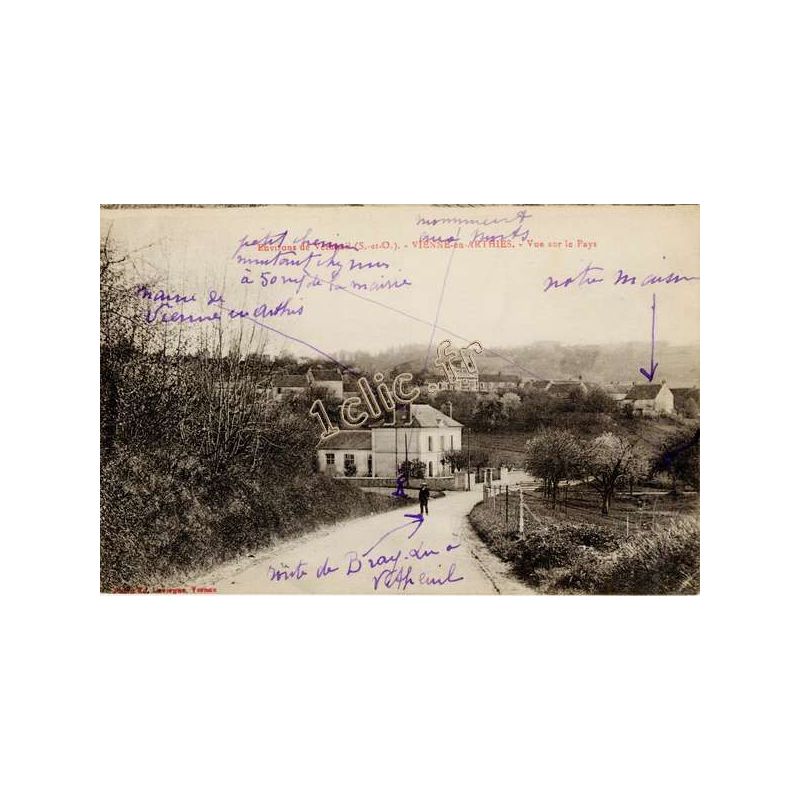 monument
aux morts
Environs de Vernon (S.-et-O.). - VIENNE-en-ARTHIES. - Vue sur le Pays
petit chemin
montant chez nous
à 50 m de la mairie
notre maison
mairie de
Vienne en Arthies
1clic.fr
route de Bray-Lu à
Vetheuil
Lavergne, Vernon